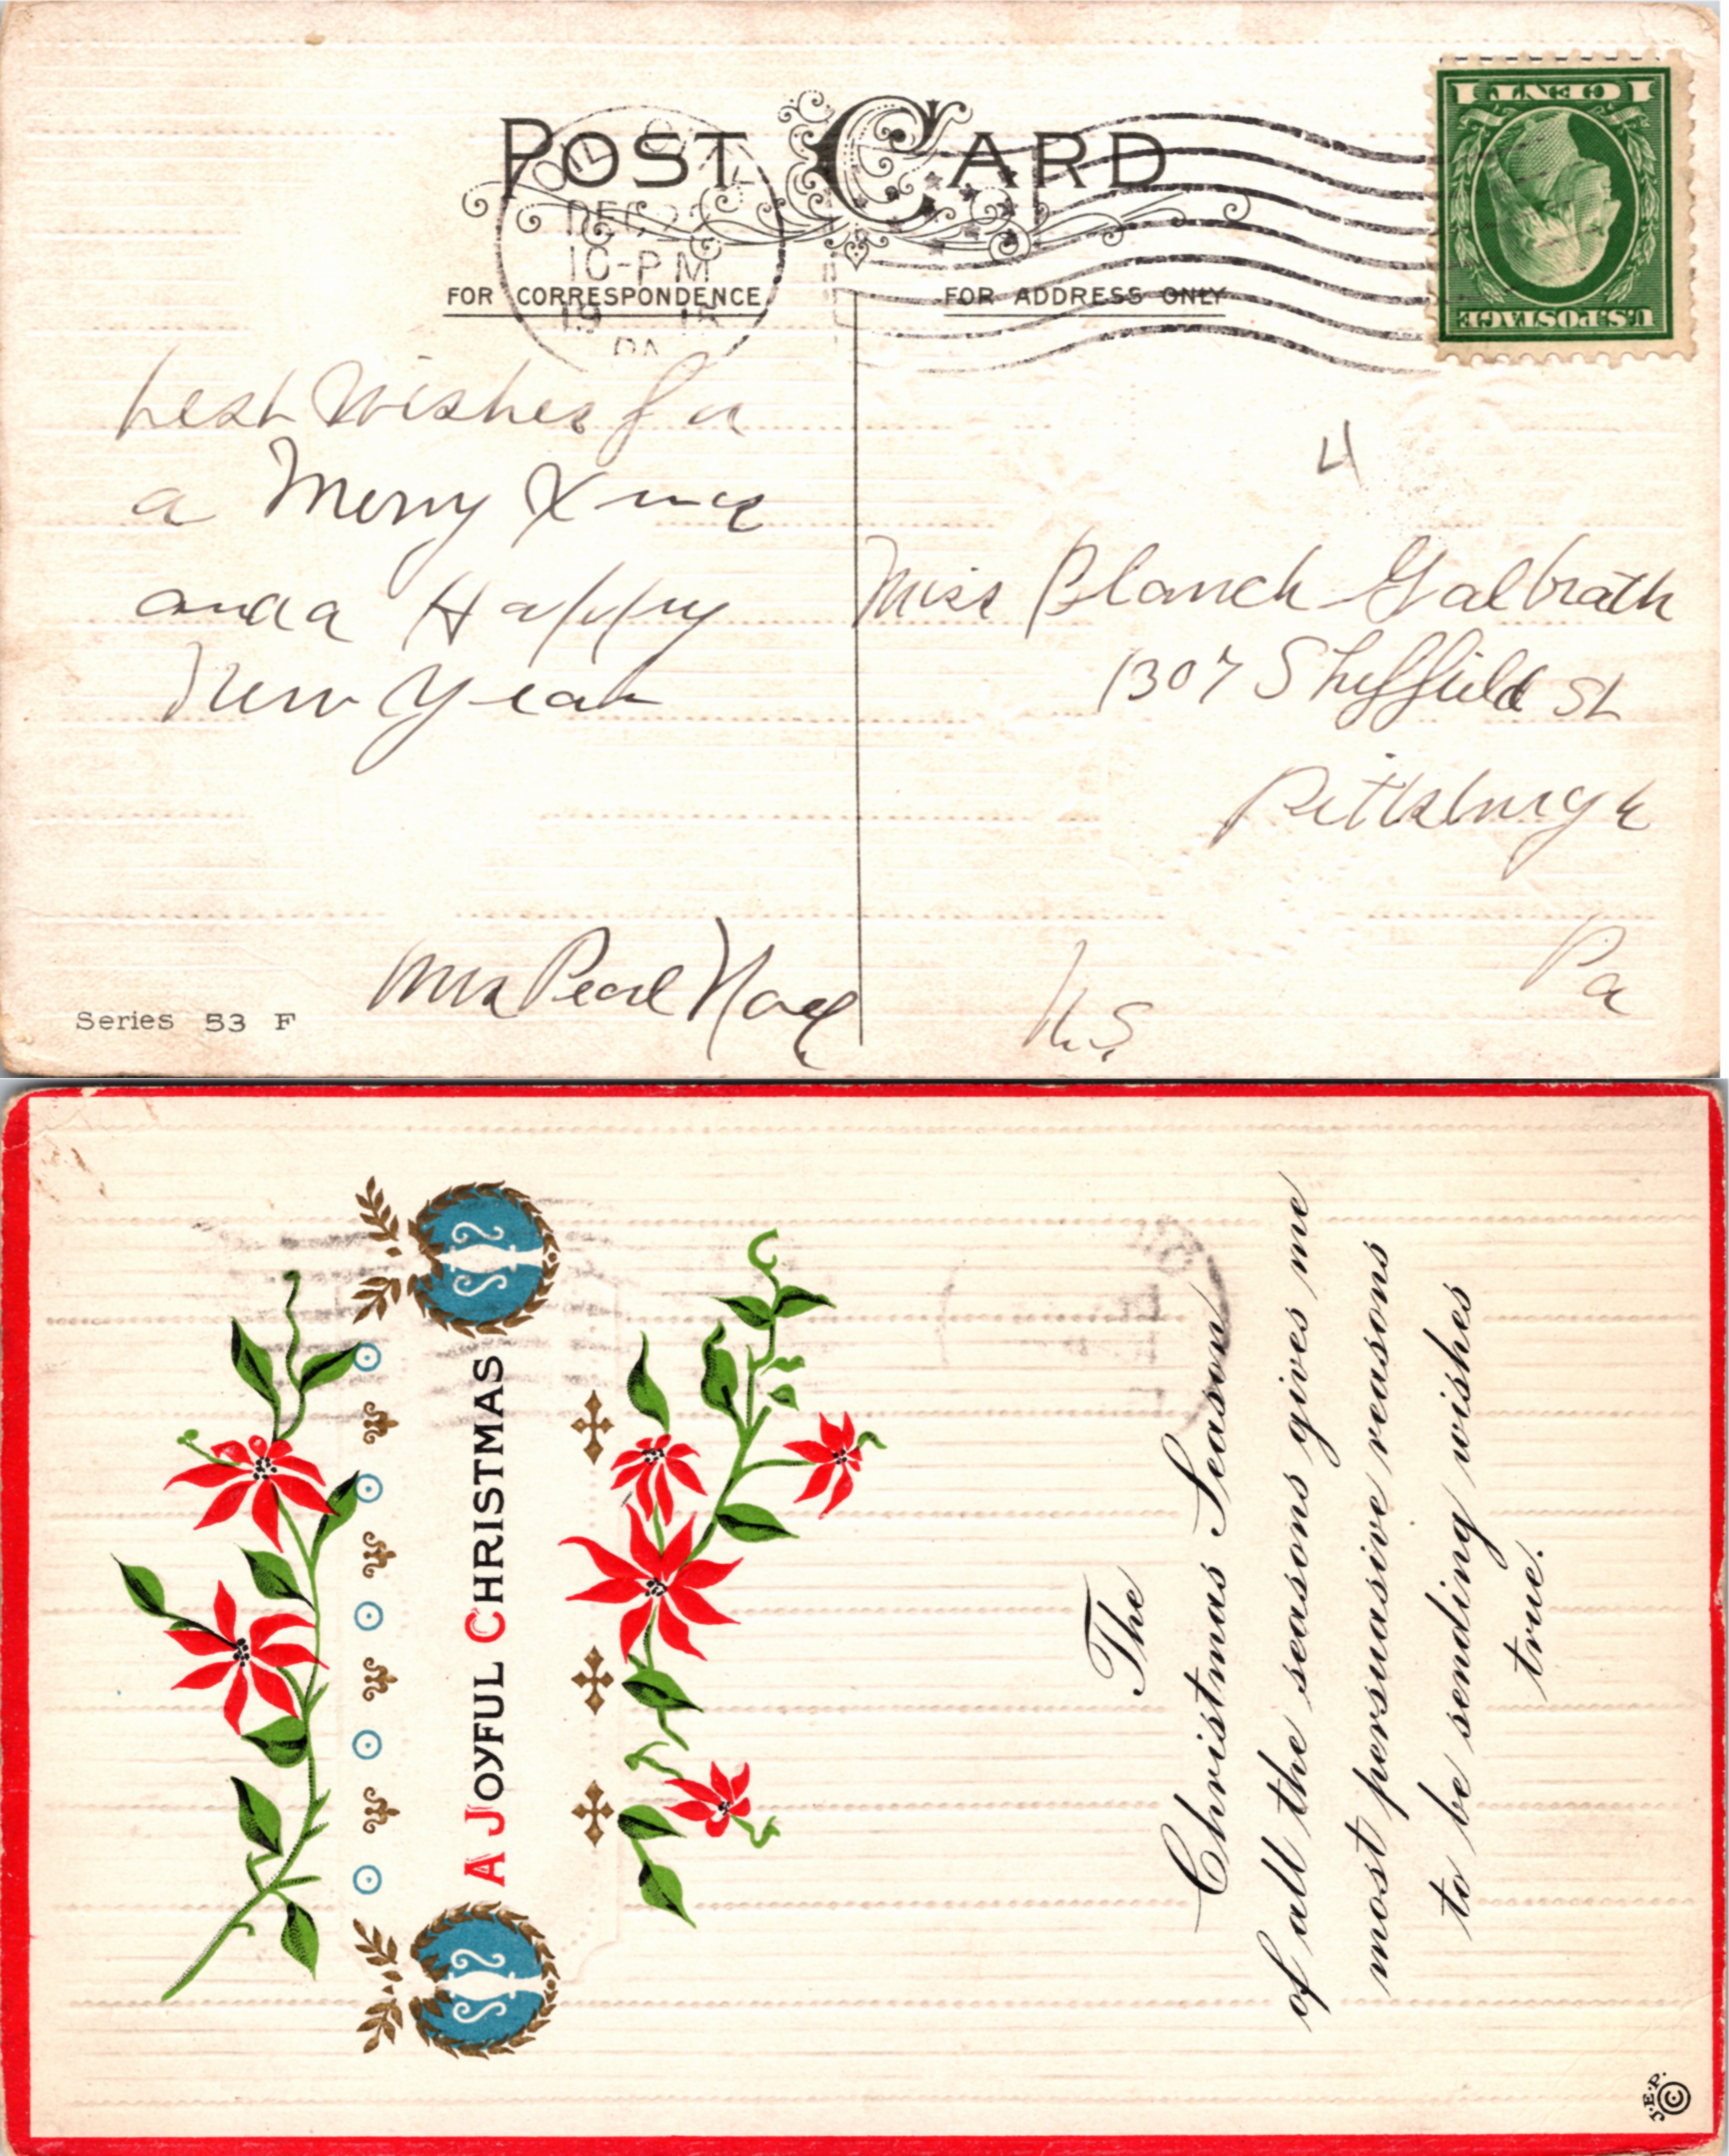 POST CARD
OIL CITY
DEC 22
10-PM
19
PA
1 CENT 1
U.S. POSTAGE
FOR CORRESPONDENCE
FOR ADDRESS ONLY
best Wishes for
a Merry Xmas
and a Happy
New Year
Mrs Pearl
4
Miss Blanch Galbrath
1307 Sheffield St
Pittsburgh
Pa
N.S.
Series 53 F
A JOYFUL CHRISTMAS
The
Christmas Season
of all the seasons gives me
most persuasive reasons
to be sending wishes
true.
J.E.P. ©